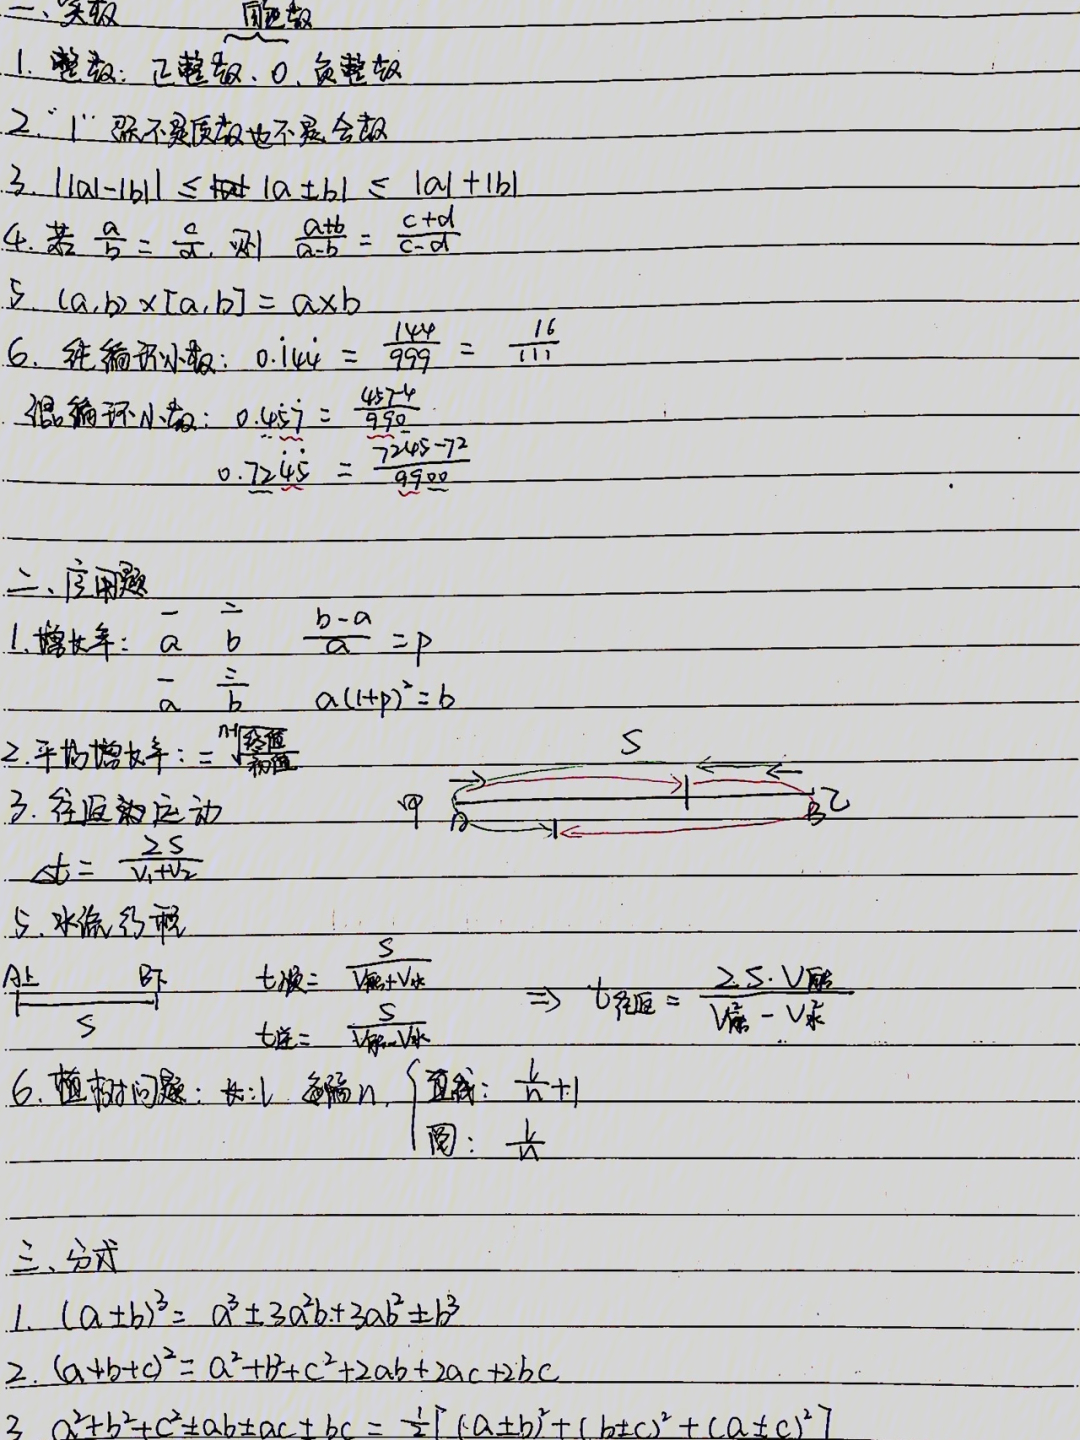 一、实数
自然数
1. 整数：正整数、0、负整数
2. "1" 既不是质数也不是合数
3. ||a|-|b|| ≤ |a±b| ≤ |a|+|b|
4. 若 a/b = c/d, 则 (a+b)/(a-b) = (c+d)/(c-d)
5. (a,b)×[a,b] = a×b
6. 纯循环小数：0.1̇44̇ = 144/999 = 16/111
混循环小数：0.45̇7̇ = (457-4)/990
0.724̇5̇ = (7245-72)/9900
二、应用题
1. 增长率：一 a 二 b (b-a)/a = p
一 a 三 b a(1+p)² = b
2. 平均增长率：= ⁿ⁻¹√(终值/初值)
S
3. 往返运动
甲 A B 乙
Δt = 2S/(V₁+V₂)
5. 水流行程
A上 B下 t顺 = S/(V船+V水)
S t逆 = S/(V船-V水) ⇒ t往返 = 2S·V船/(V²船 - V²水)
6. 植树问题：长：L 每隔n, { 直线：L/n+1
圆：L/n
三、分式
1. (a±b)³ = a³±3a²b+3ab²±b³
2. (a+b+c)² = a²+b²+c²+2ab+2ac+2bc
3. a²+b²+c²±ab±ac±bc = 1/2[(a±b)²+(b±c)²+(a±c)²]